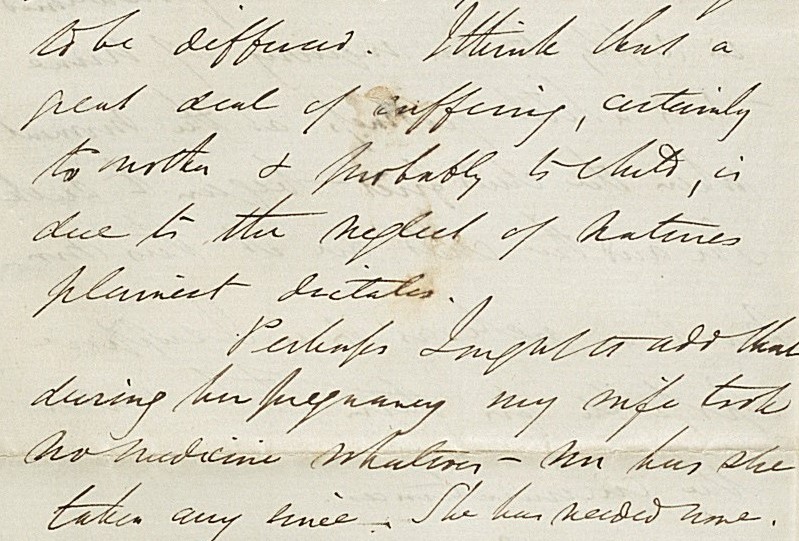 to be diffused. I think that a
great deal of suffering, certainly
to mother & probably to child, is
due to the neglect of natures
plainest dictates.
Perhaps I ought to add that
during her pregnancy my wife took
no medicine whatever – nor has she
taken any since – She has needed none.